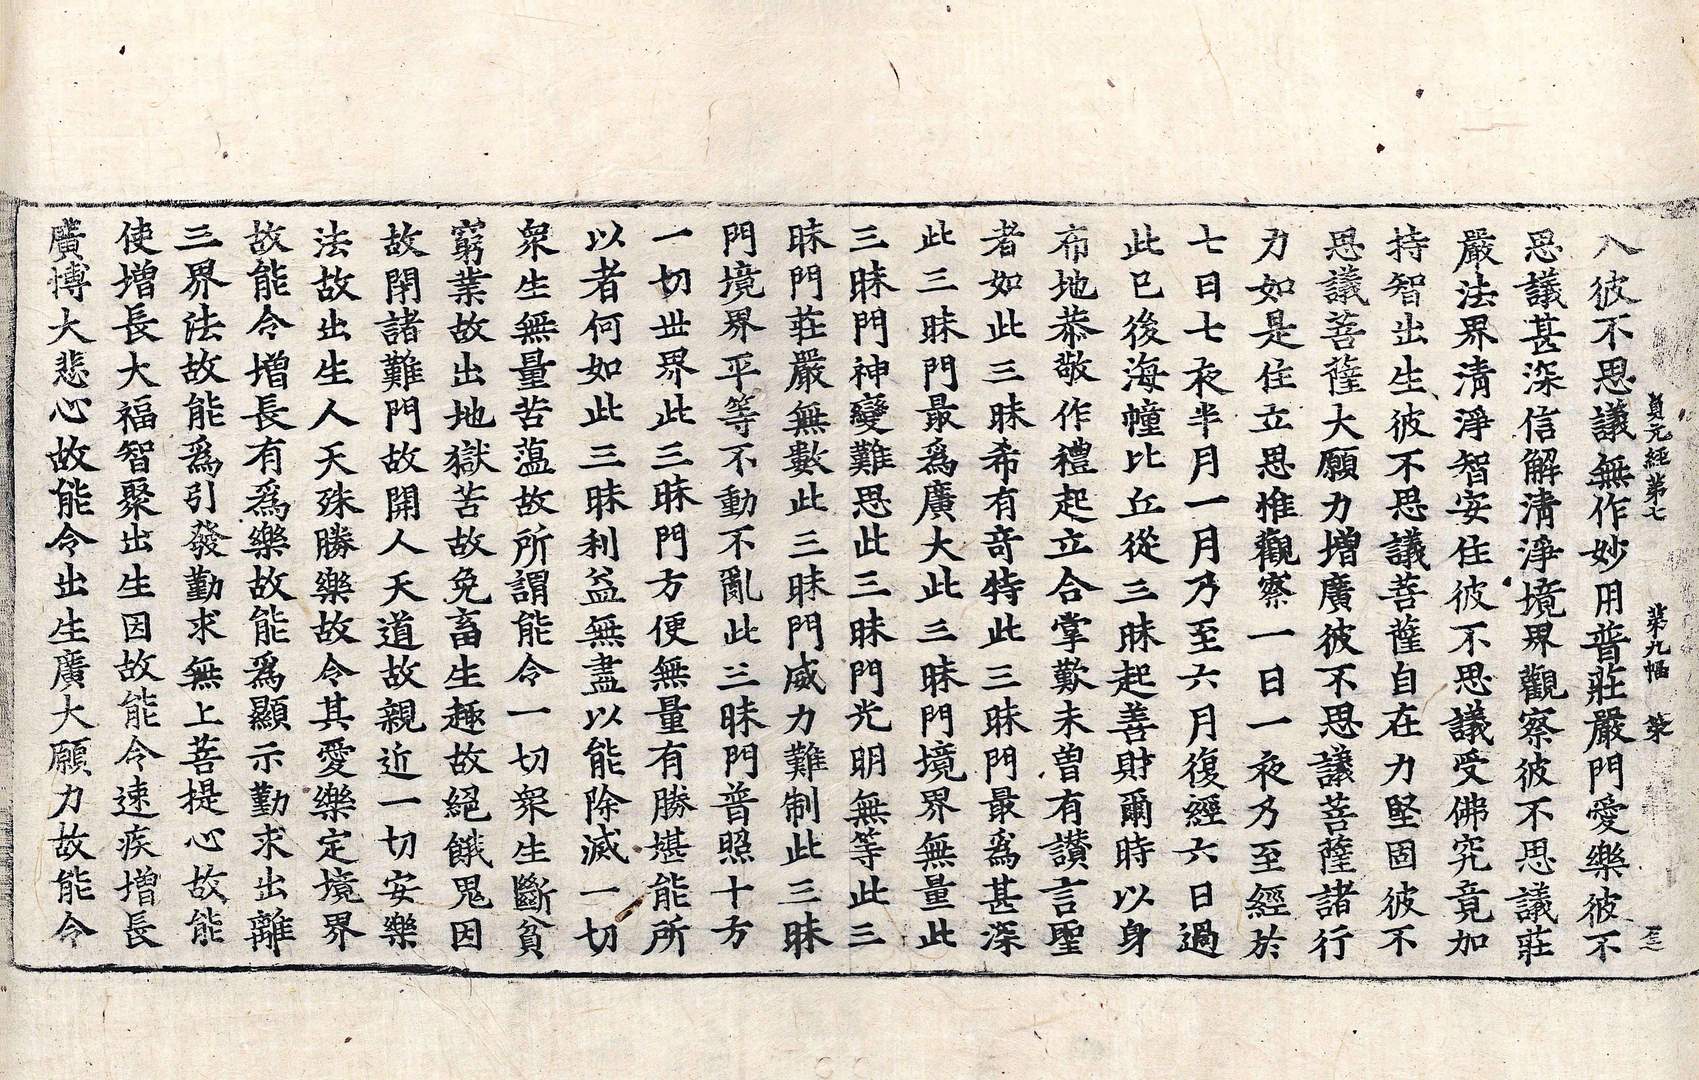 貞元經第七 第九幅
入彼不思議無作妙用普莊嚴門愛樂彼不
思議甚深信解清淨境界觀察彼不思議莊
嚴法界清淨智安住彼不思議受佛究竟加
持智出生彼不思議菩薩自在力堅固彼不
思議菩薩大願力增廣彼不思議菩薩諸行
力如是住立思惟觀察一日一夜乃至經於
七日七夜半月一月乃至六月復經六日過
此已後海幢比丘從三昧起善財爾時以身
布地恭敬作禮起立合掌歎未曾有讃言聖
者如此三昧希有竒特此三昧門最爲甚深
此三昧門最爲廣大此三昧門境界無量此
三昧門神變難思此三昧門光明無等此三
昧門莊嚴無數此三昧門威力難制此三昧
門境界平等不動不亂此三昧門普照十方
一切世界此三昧門方便無量有勝堪能所
以者何如此三昧利益無盡以能除滅一切
衆生無量苦蕰故所謂能令一切衆生斷貧
窮業故出地獄苦故免畜生趣故絕餓鬼因
故閉諸難門故開人天道故親近一切安樂
法故出生人天殊勝樂故令其愛樂定境界
故能令增長有爲樂故能爲顯示勤求出離
三界法故能爲引發勤求無上菩提心故能
使增長大福智聚出生因故能令速疾增長
廣博大悲心故能令出生廣大願力故能令